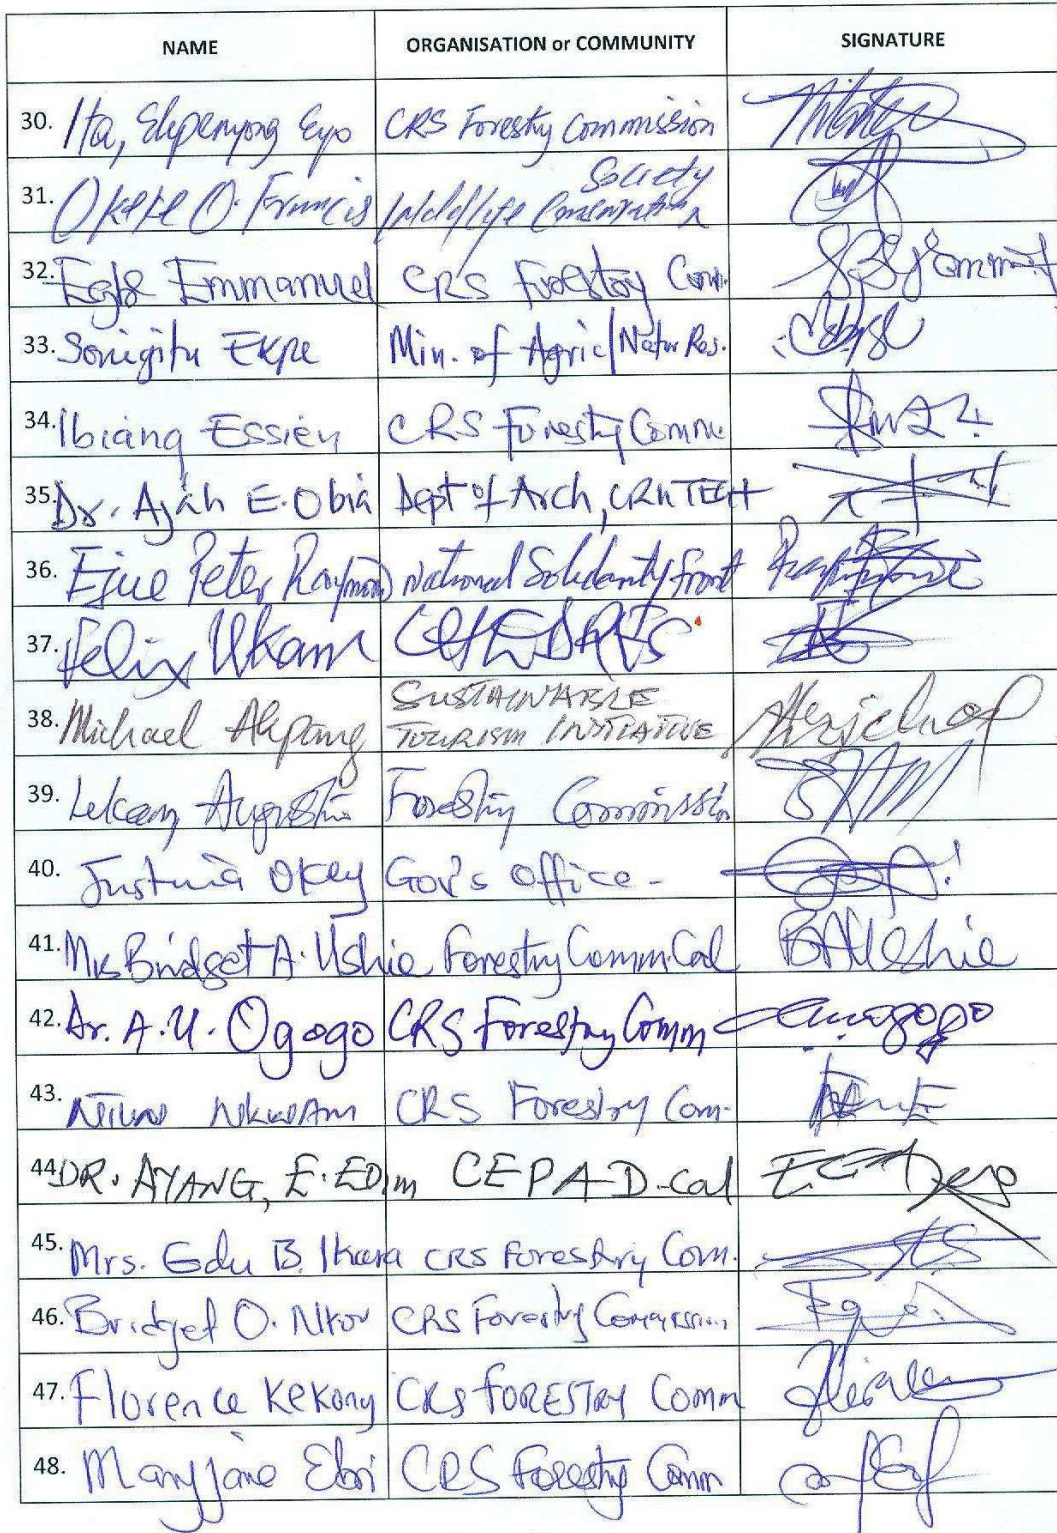 NAME ORGANISATION or COMMUNITY SIGNATURE
30. Ita, Ekpenyong Eyo CRS Forestry Commission
31. Okeke O. Francis Wildlife Conservation Society
32. Egbe Emmanuel CRS Forestry Com.
33. Sonigitu Ekpe Min. of Agric/Natur Res.
34. Ibiang Essien CRS Forestry Comm
35. Dr. Ajah E. Obia Dept of Arch, CRUTECH
36. Ejue Peter Raymond National Solidarity Front
37. Felix Ukam
38. Michael Akpang SUSTAINABLE
TOURISM INITIATIVE
39. Augustin Forestry Commission
40. Justina Okey Gov's office -
41. Mrs Bridget A. Ushie Forestry Comm. Cal BAUshie
42. Dr. A. U. Ogogo CRS Forestry Comm
43. CRS Forestry Com.
44. DR. AYANG, E. EDIM CEPAD-Cal
45. Mrs. Edu B. Ikana CRS Forestry Com.
46. Bridget O. Nkor CRS Forestry Commission
47. Florence Kekong CRS FORESTRY Comm
48. Maryjane Ebri CRS Forestry Comm